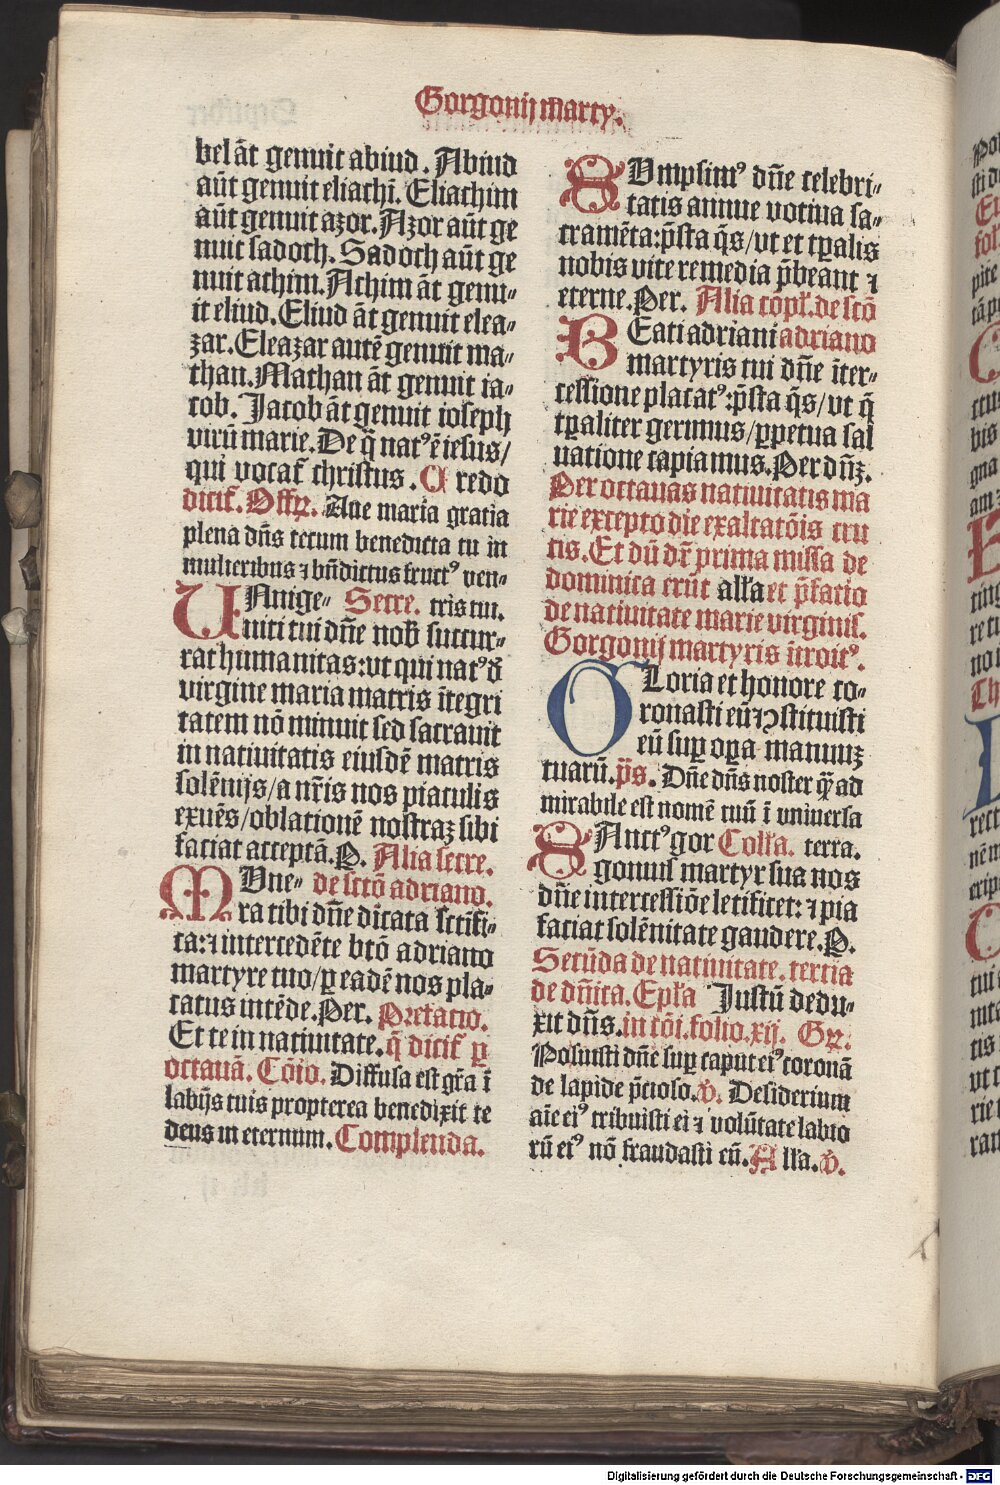 Gorgonij marty.
bel āt genuit abiud. Abiud
aūt genuit eliachī. Eliachim
aūt genuit azor. Azor aūt ge
nuit sadoch. Sadoch aūt ge
nuit achim. Achim āt genu-
it eliud. Eliud āt genuit elea-
zar. Eleazar autē genuit ma-
than. Mathan āt genuit ia-
cob. Jacob āt genuit ioseph
virū marie. De q̄ natꝰ ē iesus/
qui vocat̄ christus. Credo
dicit̄. Offꝝ. Aue maria gratia
plena dn̄s tecum benedicta tu in
mulieribus ⁊ bn̄dictus fructꝰ ven-
Vnige- Secre. tris tui.
niti tui dn̄e nob̄ succur-
rat humanitas: vt qui natꝰ d̄
virgine maria matris ītegri
tatem nō minuit sed sacrauit
in natiuitatis eiusdē matris
solēnijs/a nr̄is nos piaculis
exuēs/oblationē nostraꝫ sibi
faciat acceptā. P. Alia secre.
Mune- de sctō adriano.
ra tibi dn̄e dicata sctifi-
ca: ⁊ intercedēte btō adriano
martyre tuo/ꝑ eadē nos pla-
catus intēde. Per. Prefatio.
Et te in natiuitate. q̄ dicit̄ ꝑ
octauā. Cōio. Diffusa est gr̄a ī
labijs tuis propterea benedixit te
deus in eternum. Complenda.
SUmpsimꝰ dn̄e celebri-
tatis annue votiua sa-
cramēta: p̄sta q̄s/vt et tꝑalis
nobis vite remedia p̄beant ⁊
eterne. Per. Alia cōpl̄. de sctō
BEati adriani adriano
martyris tui dn̄e īter-
cessione placatꝰ: p̄sta q̄s/vt q̄
tꝑaliter gerimus/ꝑpetua sal
uatione capiamus. Per dn̄ꝫ.
Per octauas natiuitatis ma
rie excepto die exaltatōis cru
cis. Et dū dr̄ prima missa de
dominica erūt all̄a et p̄facio
de natiuitate marie virginis.
Gorgonij martyris ītroitꝰ.
GLoria et honore co-
ronasti eū ⁊ ꝯstituisti
eū suꝑ oꝑa manuuꝫ
tuarū. p̄s. Dn̄e dn̄s noster q̄ꝫ ad
mirabile est nomē tuū ī vniuersa
SAnctꝰ gor Coll̄a. terra.
gonius martyr sua nos
dn̄e intercessiōe letificet: ⁊ pia
faciat solēnitate gaudere. P.
Secūda de natiuitate. tertia
de dn̄ica. Epl̄a Justū dedu-
xit dn̄s. in cōi. folio. xij. Gꝝ.
Posuisti dn̄e suꝑ caput eiꝰ coronā
de lapide p̄cioso. v̄. Desiderium
aīe eiꝰ tribuisti ei ⁊ volūtate labio
rū eiꝰ nō fraudasti eū. All̄a. v̄.
Digitalisierung gefördert durch die Deutsche Forschungsgemeinschaft - DFG